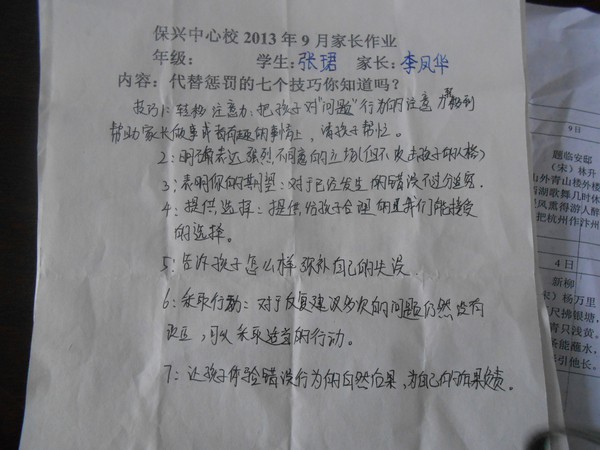 保兴中心校2013年9月家长作业
年级： 学生：张珺 家长：李凤华
内容：代替惩罚的七个技巧你知道吗？
技巧1：转移注意力：把孩子对“问题”行为的注意力转移到
帮助家长做事或有趣的事情上，请孩子帮忙。
2：明确表达强烈不同意的立场（但不攻击孩子的人格）
3：表明你的期望：对于已经发生的错误不过分追究.
4：提供选择：提供给孩子合理的且我们能接受
的选择。
5：告诉孩子怎么样弥补自己的失误.
6：采取行动：对于反复建议多次的问题仍然没有
改正，可以采取适当的行动。
7：让孩子体验错误行为的自然后果，为自己的后果负责。
9日
题临安邸
（宋）林升
山外青山楼外楼
西湖歌舞几时休
风熏得游人醉
把杭州作汴州
4日
新柳
宋）杨万里
尺拂银塘，
青只浅黄。
条能蘸水，
影引他长。